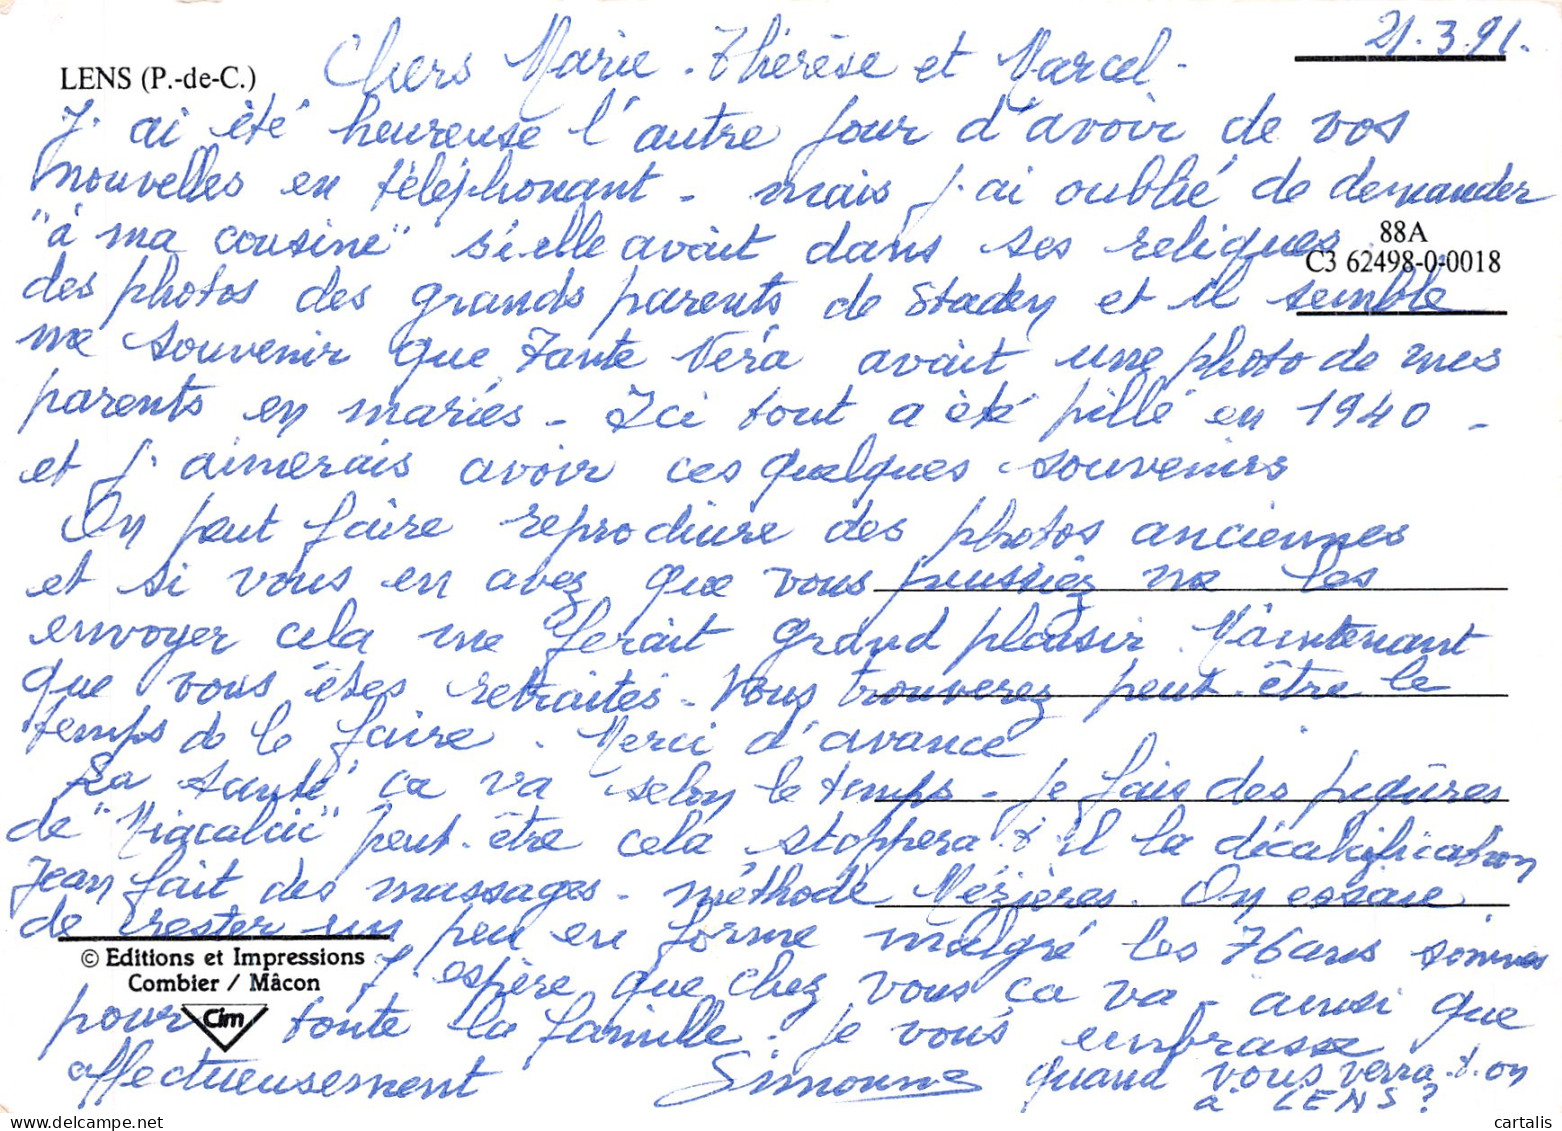 21.3.91.
LENS (P.-de-C.)
Chers Marie-Thérèse et Marcel-
J'ai été heureuse l'autre jour d'avoir de vos
nouvelles en téléphonant - mais j'ai oublié de demander
"à ma cousine" si elle avait dans ses reliques
88A
C3 62498-0-0018
des photos des grands parents de Staden et il semble
me souvenir que Tante Véra avait une photo de mes
parents en mariés - Ici tout a été pillé en 1940 -
et j'aimerais avoir ces quelques souvenirs
On peut faire reproduire des photos anciennes
et si vous en avez que vous puissiez me les
envoyer cela me ferait grand plaisir. Maintenant
que vous êtes retraités - Vous trouverez peut-être le
temps de le faire. Merci d'avance
La santé ça va selon le temps - je fais des piqûres
de "Miacalcic" peut-être cela stoppera-t-il la décalcification
Jean fait des massages - méthode Mézières. On essaie
de rester un peu en forme malgré les 76 ans sonnés
© Editions et Impressions
Combier / Mâcon
Cim
J'espère que chez vous ça va - ainsi que
pour toute la famille. je vous embrasse
affectueusement Simonne quand vous verra-t-on
à LENS ?
cartalis